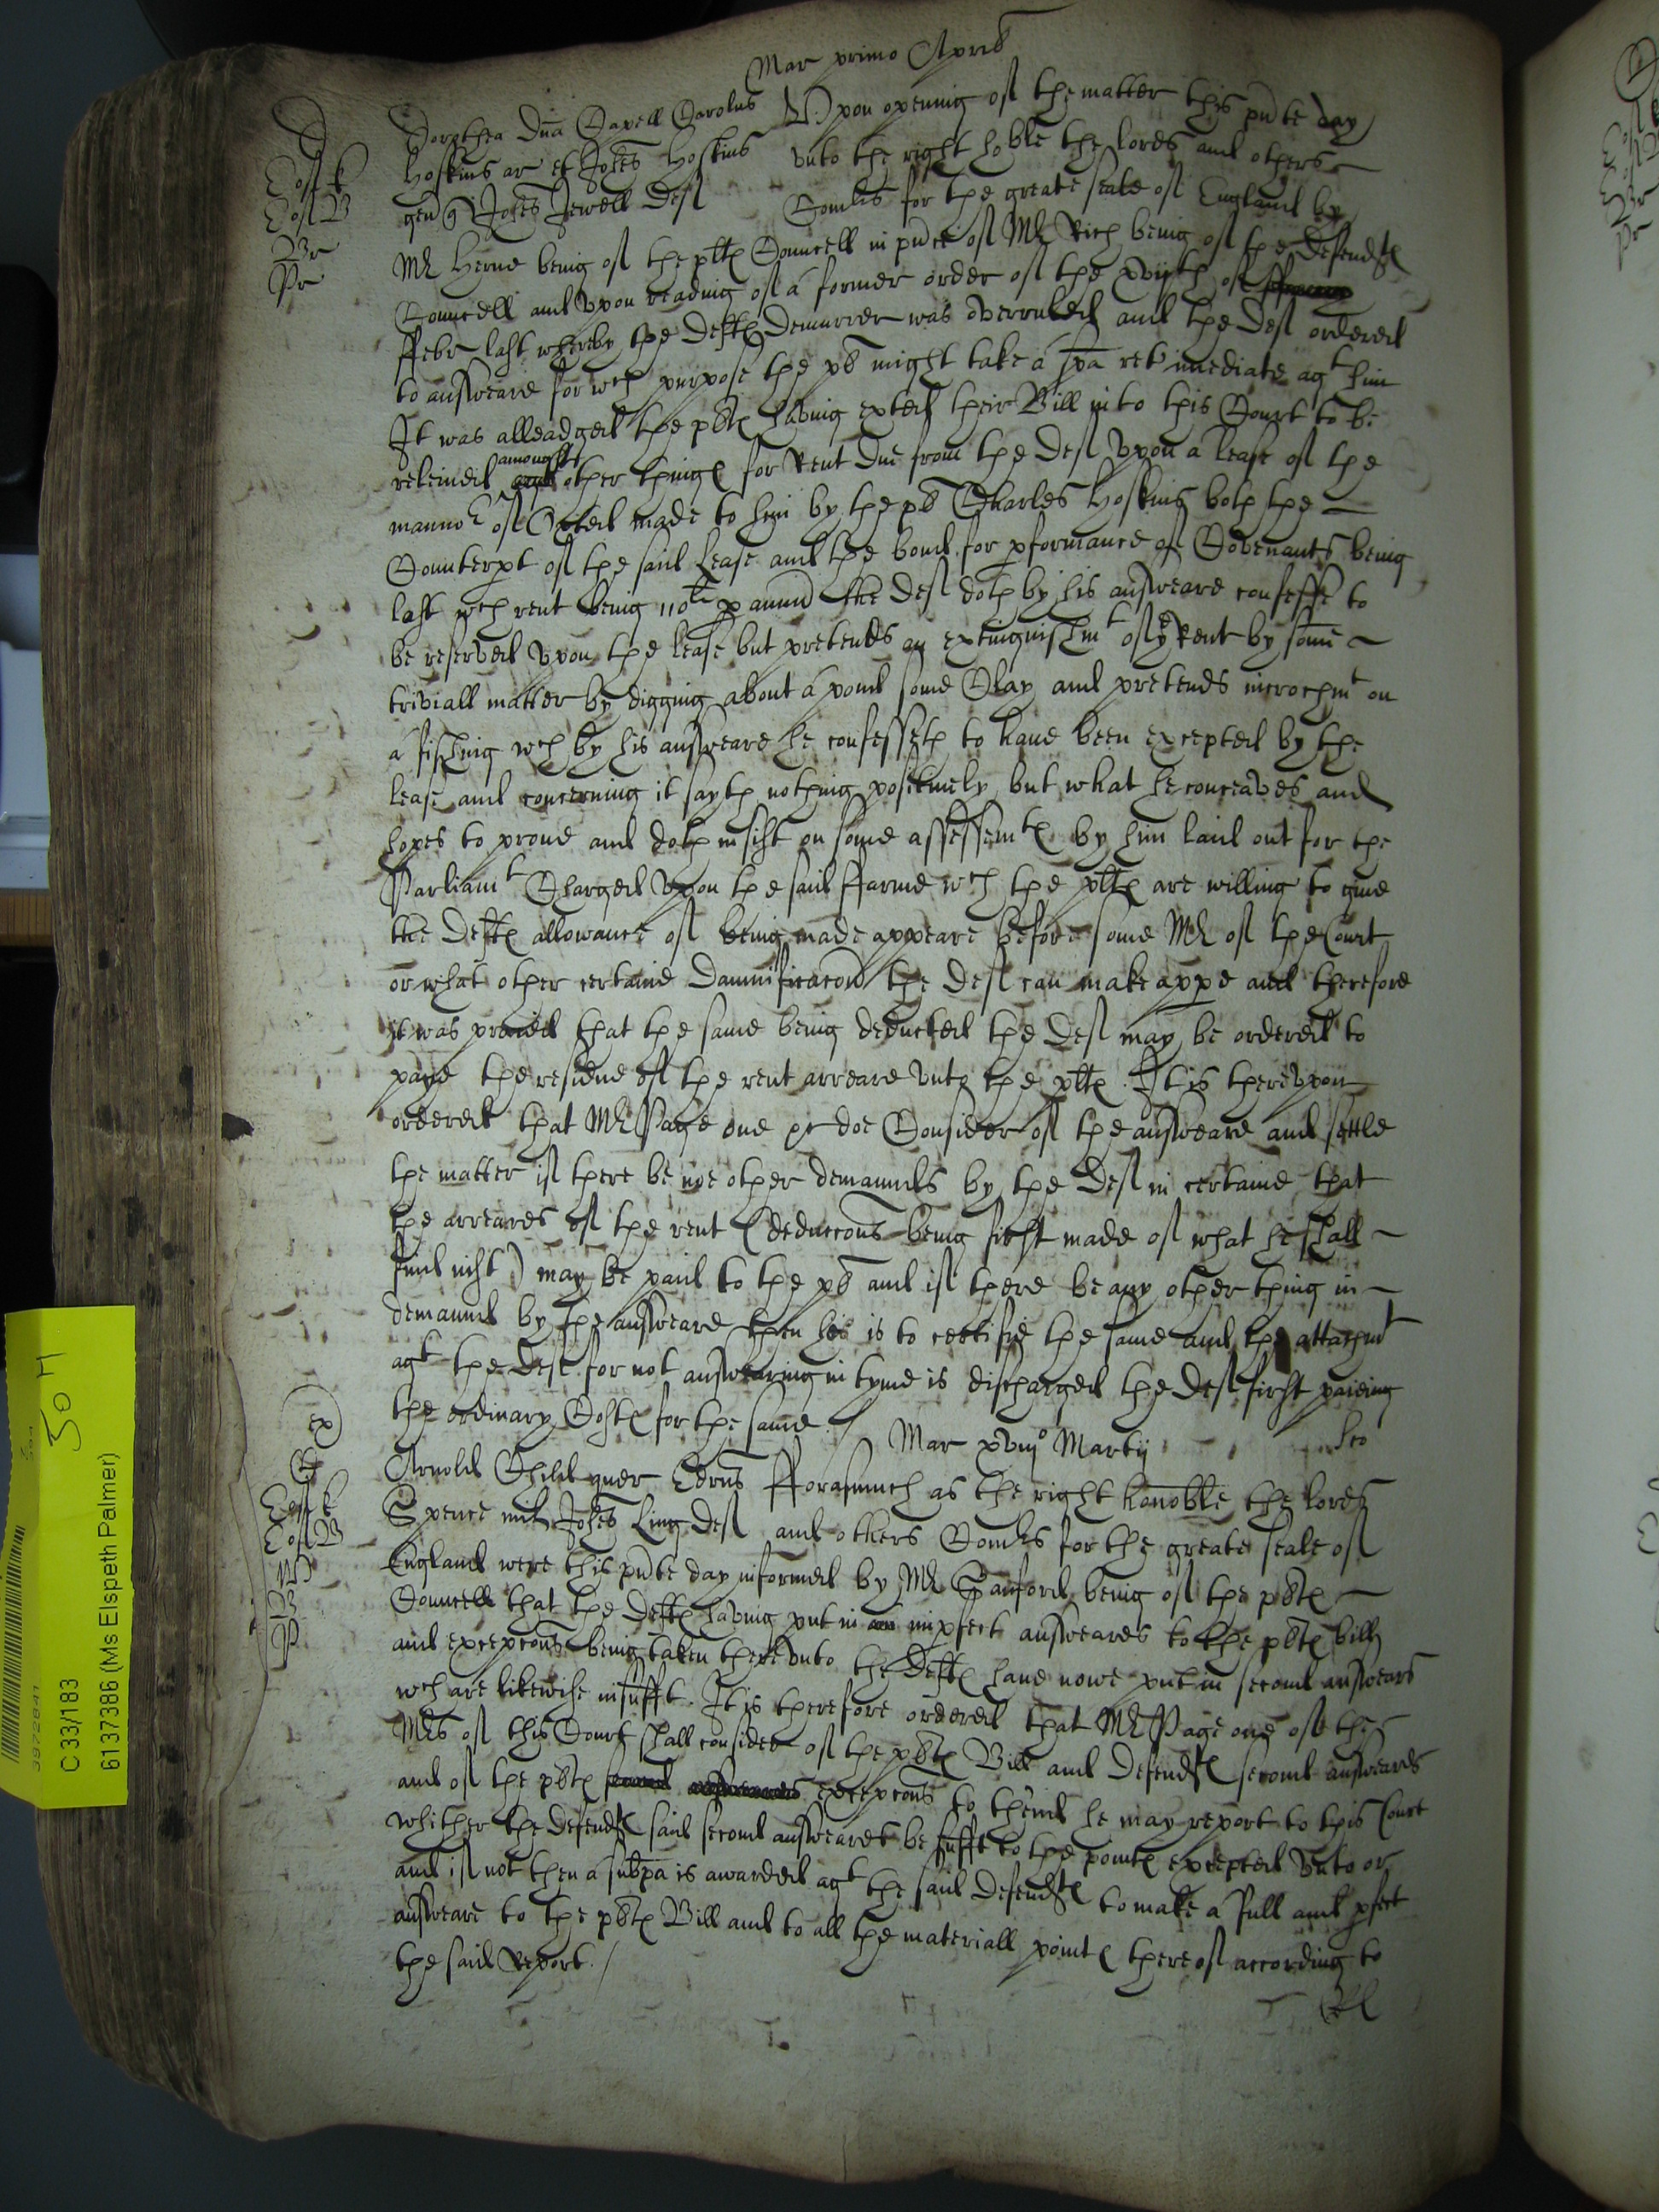 Mar primo Aprs
D
Dorothea Dna Capell Carolus
Hoskins ar et Johes Hoskins
gen q Johes Jewell Def
Vpon opening of the matter this pnte day
vnto the right hoble the Lords and others
Comrs for the greate seale of England by
Mr Herne being of the pltes Councell in pnce of Mr Rich being of the Defendts
Councell and vpon reading of a former order of the xvijth of
ffebr last whereby the Deftes Demurrer was overruled and the Def ordered
to answeare for wch purpose the pl might take a spa ret imediate agt him
It was alleadged the pltes having exted their Bill into this Court to be
releived amongst other things for Rent due from the Def vpon a lease of the
mannor of Oxted made to him by the pl Charles Hoskins both the
Counterpt of the said Lease and the bond for pformance of Covenants being
last wch rent being 110li p annu the Def doth by his answeare confesse to
be reserved vpon the lease but pretends an extinguishmt of ye Rent by some
triviall matter by digging about a pond some Clay and pretends incrochmt on
a fishing wch by his answeare he confesseth to haue been excepted by the
lease and concerning it sayth nothing positiuely but what he conceaves and
hopes to proue and doth insist on some assessemts by him laid out for the
Parliamt Charged vpon the said ffarme wch the pltes are willing to giue
the Deftes allowance of being made appeare before some Mr of the Court
or what other certaine Damnificacon the Def can make appe and therefore
it was praied that the same being deducted the Def may be ordered to
paye the residue of the rent arreare vnto the pltes. It is therevpon
ordered that Mr Page one &c doe Consider of the answeare and settle
the matter if there be noe other demaunds by the Def in certaine that
the arreares of the rent (deduccons being first made of what he shall
find iust) may be paid to the pl and if there be any other thing in
demaund by the answeare then hee is to certifie the same and the attachmt
agt the Def for not answearing in tyme is discharged the Def first paieing
the ordinary Costes for the same./
Mar xviijo Martij
ex
Arnold Child quer Edrus
Spence Johes Ling Def
fforasmuch as the right honoble the Lords
and others Comrs for the greate seale of
England were this pnte day informed by Mr Sanford being of the pltes
Councell that the Deftes having put in impfect answeares to the pltes bill
and excepcons being taken therevnto the Deftes haue nowe put in second answears
wch are likewise insufft. It is therefore ordered that Mr Page one of the
Mrs of this Court shall consider of the pltes Bill and Defendts second answeares
and of the pltes second answeares excepcons to them he may report to this Court
whither the Defendts said second answeares be sufft to the points excepted vnto or
and if not then a subpa is awarded agt the said Defendts to make a full and pfect
answeare to the pltes Bill and to all the materiall points thereof according to
the said Report./
C 33/183
6137386 (Ms Elspeth Palmer)